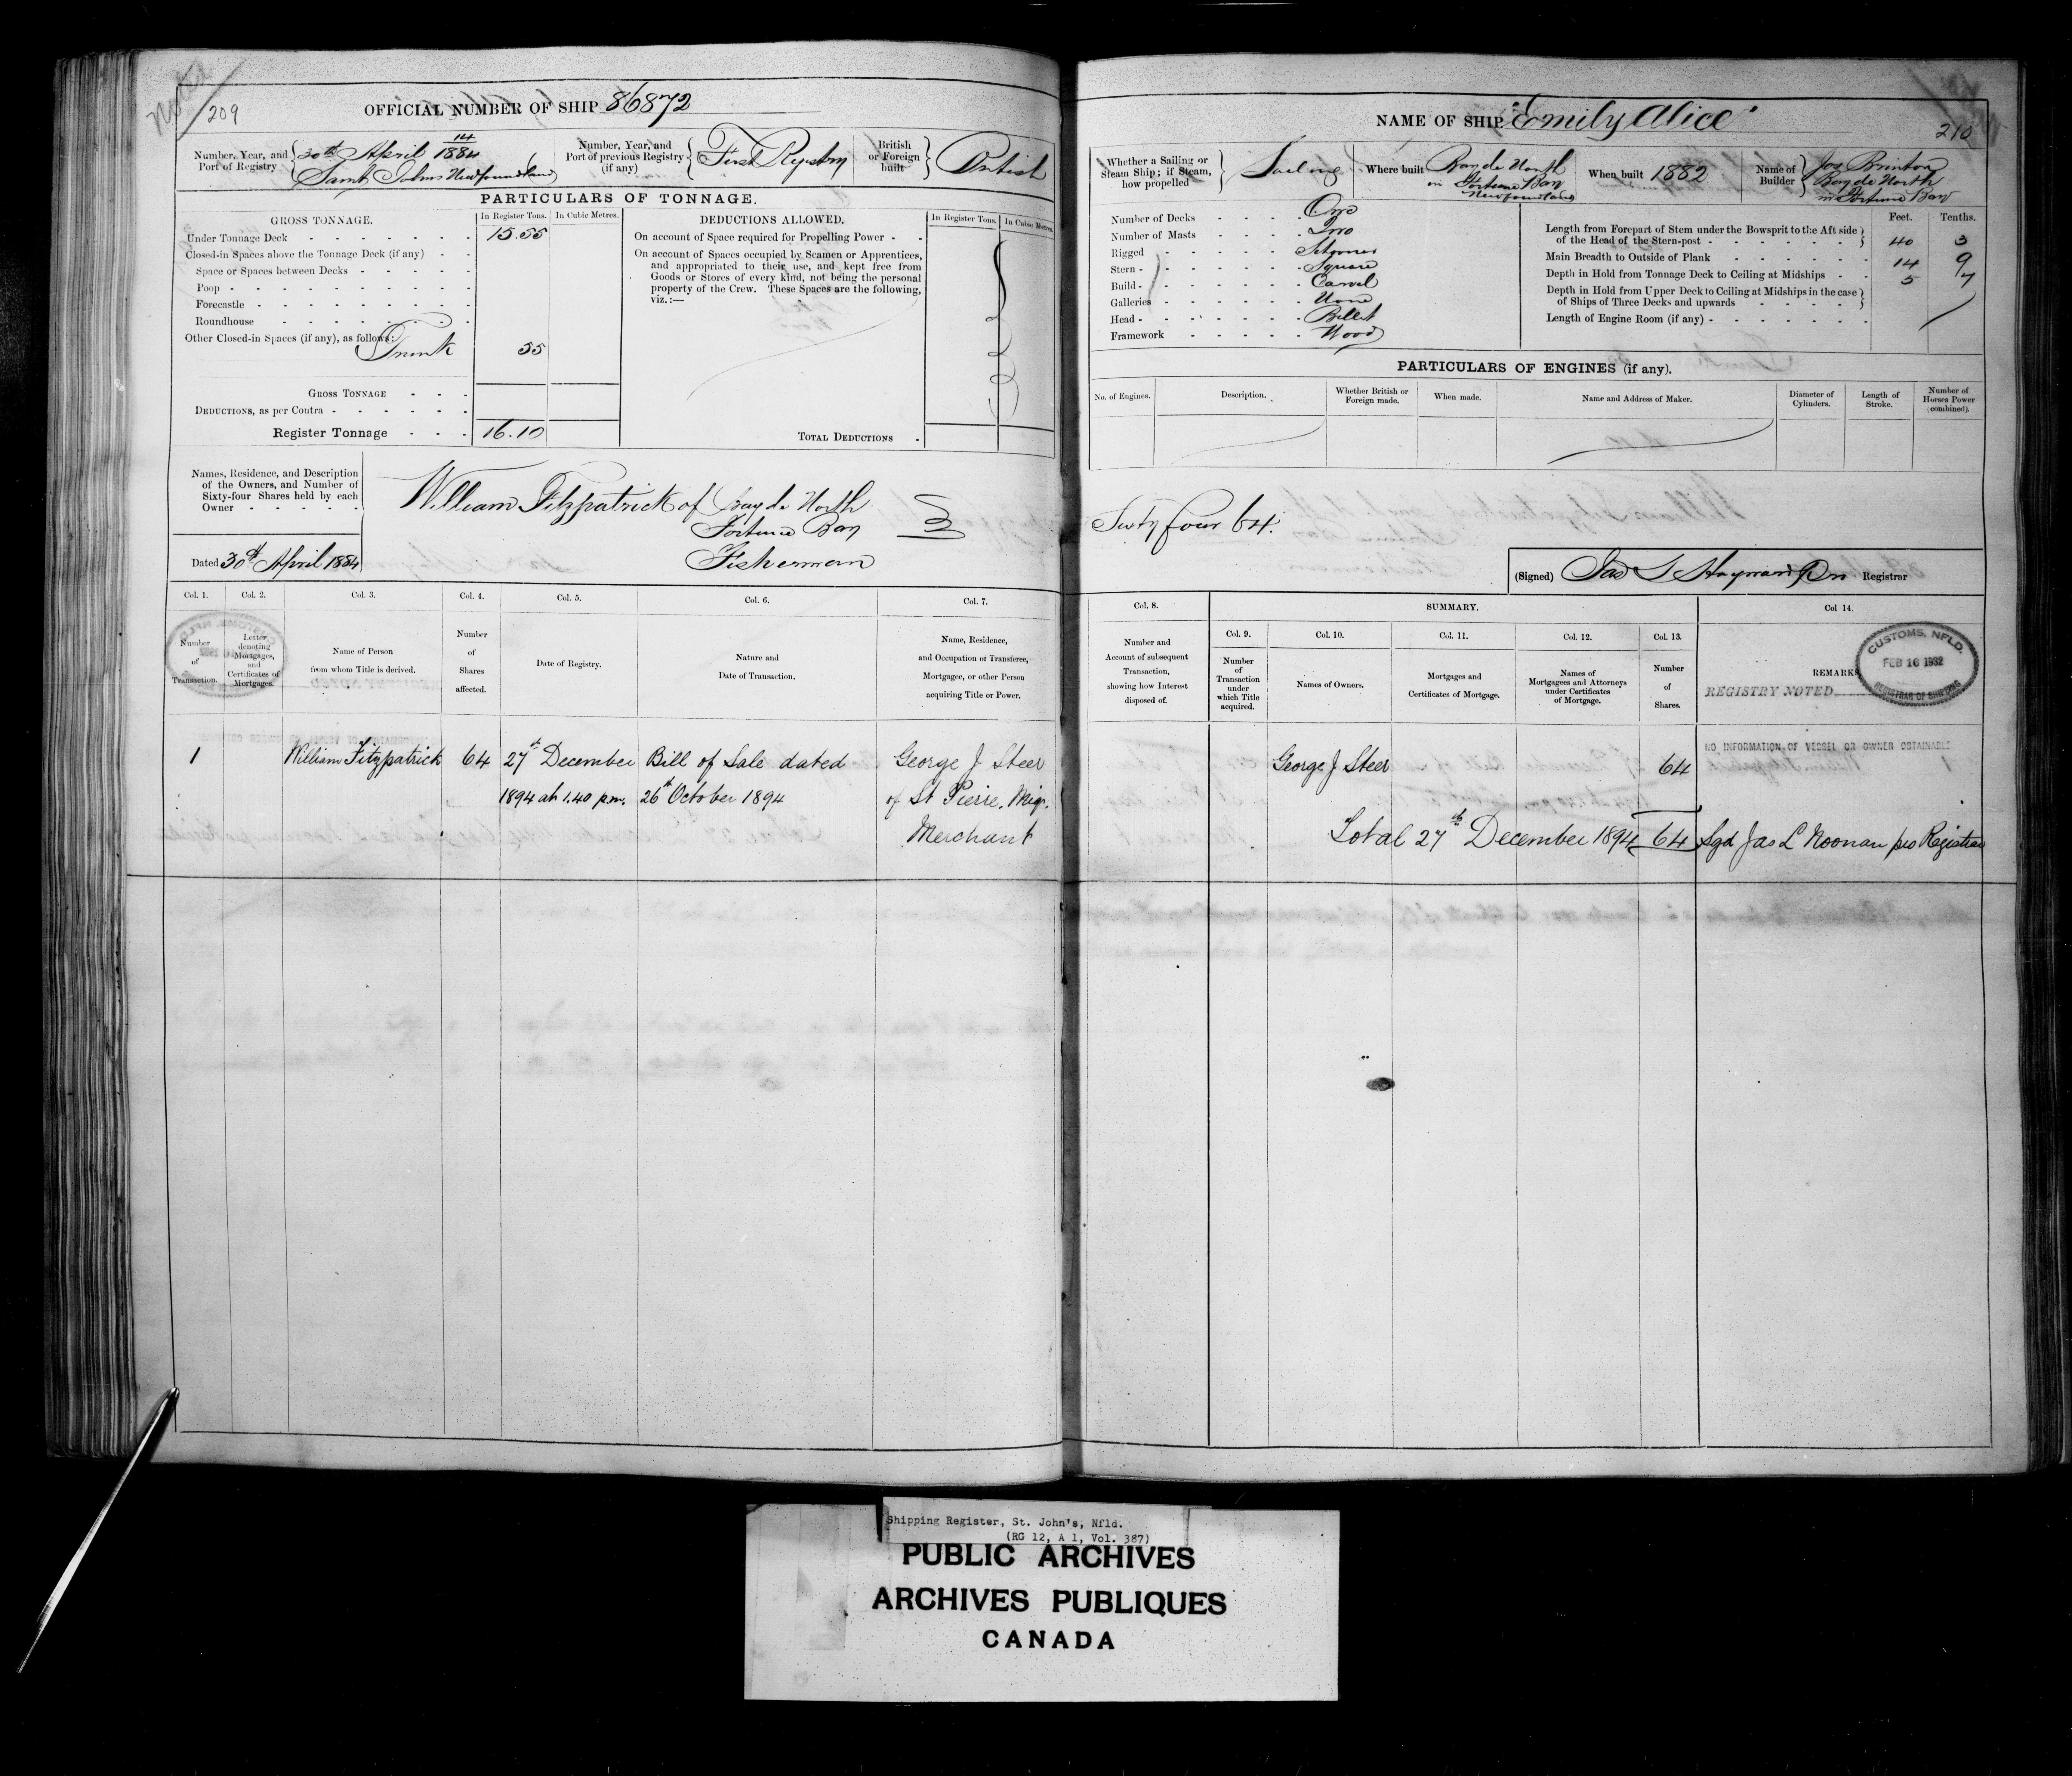 Noted
209
OFFICIAL NUMBER OF SHIP 86872
Number, Year, and Port of Registry
14
30th April 1884
Saint Johns Newfoundland
Number, Year, and Port of previous Registry (if any)
First Registry
British or Foreign built
British
PARTICULARS OF TONNAGE.
GROSS TONNAGE.
In Register Tons.
In Cubic Metres.
Under Tonnage Deck 15.55
Closed-in Spaces above the Tonnage Deck (if any)
Space or Spaces between Decks
Poop
Forecastle
Roundhouse
Other Closed-in Spaces (if any), as follows:
Trunk 55
GROSS TONNAGE
DEDUCTIONS, as per Contra
Register Tonnage 16.10
DEDUCTIONS ALLOWED.
In Register Tons.
In Cubic Metres.
On account of Space required for Propelling Power
On account of Spaces occupied by Seamen or Apprentices,
and appropriated to their use, and kept free from
Goods or Stores of every kind, not being the personal
property of the Crew. These Spaces are the following,
viz.:—
TOTAL DEDUCTIONS
Names, Residence, and Description
of the Owners, and Number of
Sixty-four Shares held by each
Owner
William Fitzpatrick of Bay de North
Fortune Bay
Fisherman
Dated 30th April 1884
Col. 1.
Number of Transaction.
Col. 2.
Letter denoting Mortgages, and Certificates of Mortgages.
Col. 3.
Name of Person from whom Title is derived.
Col. 4.
Number of Shares affected.
Col. 5.
Date of Registry.
Col. 6.
Nature and Date of Transaction.
Col. 7.
Name, Residence, and Occupation of Transferee, Mortgagee, or other Person acquiring Title or Power.
1 William Fitzpatrick 64 27th December Bill of Sale dated George J Steer
1894 at 1.40 p.m. 26th October 1894 of St Pierre, Miq.
Merchant
NAME OF SHIP "Emily Alice"
210
Whether a Sailing or Steam Ship; if Steam, how propelled
Sailing
Where built
Bay de North
in Fortune Bay
Newfoundland
When built 1882
Name of Builder
Jos Brinton
Bay de North
in Fortune Bay
Number of Decks One
Number of Masts Two
Rigged Schooner
Stern Square
Build Carvel
Galleries None
Head Billet
Framework Wood
Feet. Tenths.
Length from Forepart of Stem under the Bowsprit to the Aft side
of the Head of the Stern-post 40 3
Main Breadth to Outside of Plank 14 9
Depth in Hold from Tonnage Deck to Ceiling at Midships 5 7
Depth in Hold from Upper Deck to Ceiling at Midships in the case
of Ships of Three Decks and upwards
Length of Engine Room (if any)
PARTICULARS OF ENGINES (if any).
No. of Engines.
Description.
Whether British or Foreign made.
When made.
Name and Address of Maker.
Diameter of Cylinders.
Length of Stroke.
Number of Horses Power (combined).
Sixty four 64.
(Signed) Jas S Hayward Registrar
Col. 8.
Number and Account of subsequent Transaction, showing how Interest disposed of.
SUMMARY.
Col. 9.
Number of Transaction under which Title acquired.
Col. 10.
Names of Owners.
Col. 11.
Mortgages and Certificates of Mortgage.
Col. 12.
Names of Mortgagees and Attorneys under Certificates of Mortgage.
Col. 13.
Number of Shares.
Col 14.
REMARKS
REGISTRY NOTED
CUSTOMS, NFLD.
FEB 16 1932
REGISTRAR OF SHIPPING
NO INFORMATION OF VESSEL OR OWNER OBTAINABLE
George J Steer 64
Total 27th December 1894 64 Sgd Jas L Noonan pro Registrar
Shipping Register, St. John's, Nfld.
(RG 12, A 1, Vol. 387)
PUBLIC ARCHIVES
ARCHIVES PUBLIQUES
CANADA